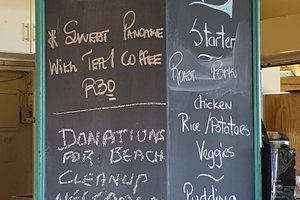 * Sweet Pancake
With Tea / Coffee
R30
DONATIONS
FOR BEACH
CLEANUP
WELCOME
Starter
~
Roast Pork
chicken
Rice/Potatoes
Veggies
~
Pudding